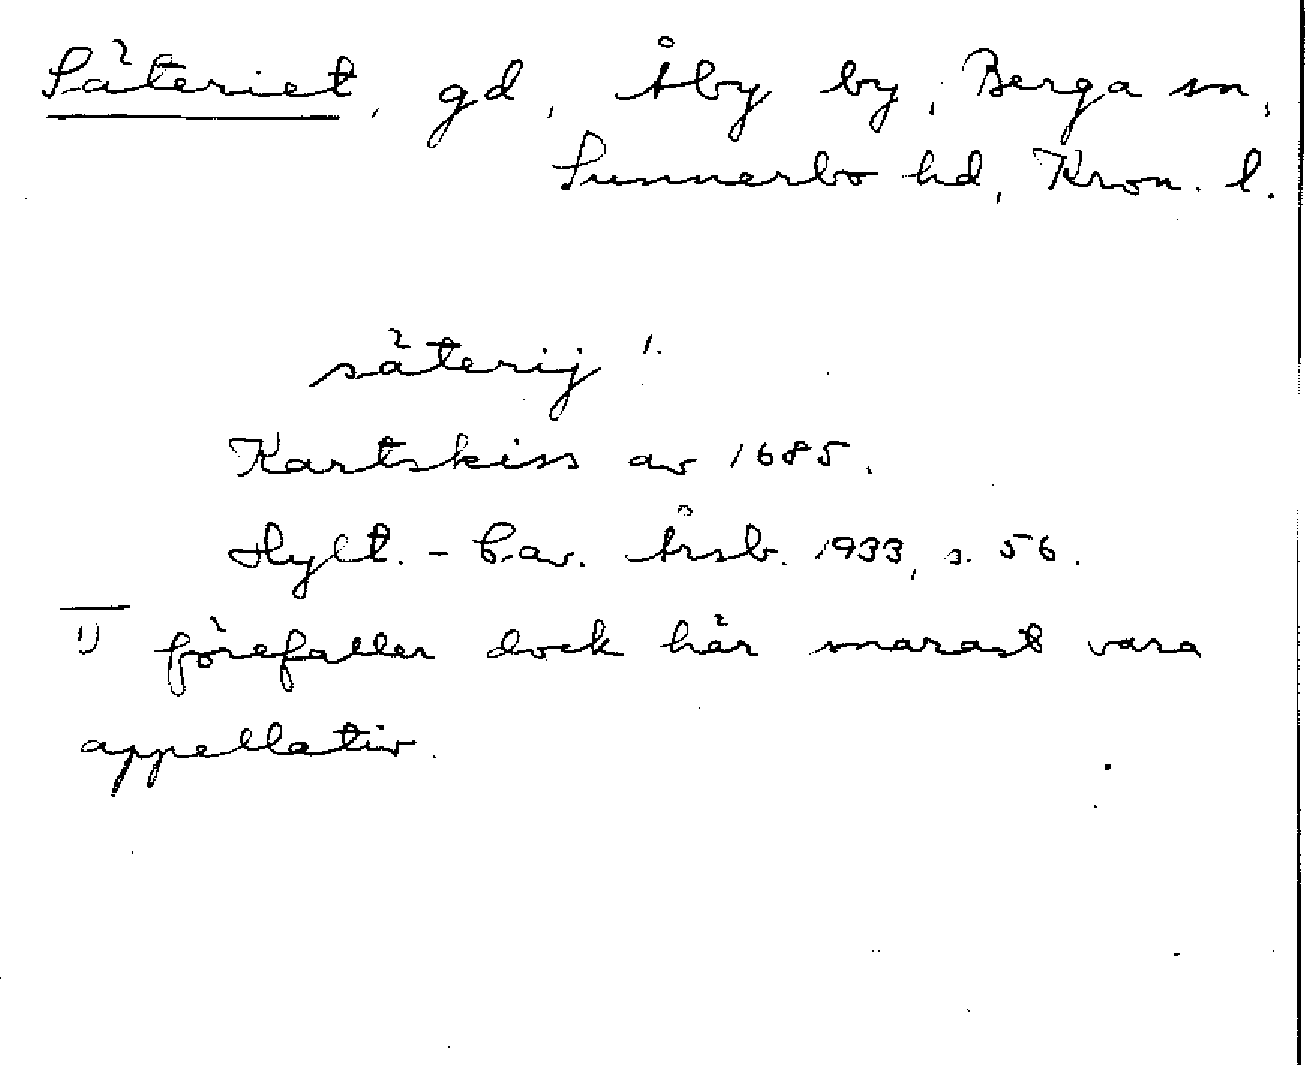 Säteriet, gd, Åby by, Berga sn,
Sunnerbo hd, Kron. l.
säterij 1.
Kartskiss av 1685.
Hylt.-Cav. Årsb. 1933, s. 56.
1) förefaller dock här snarast vara
appellativ.